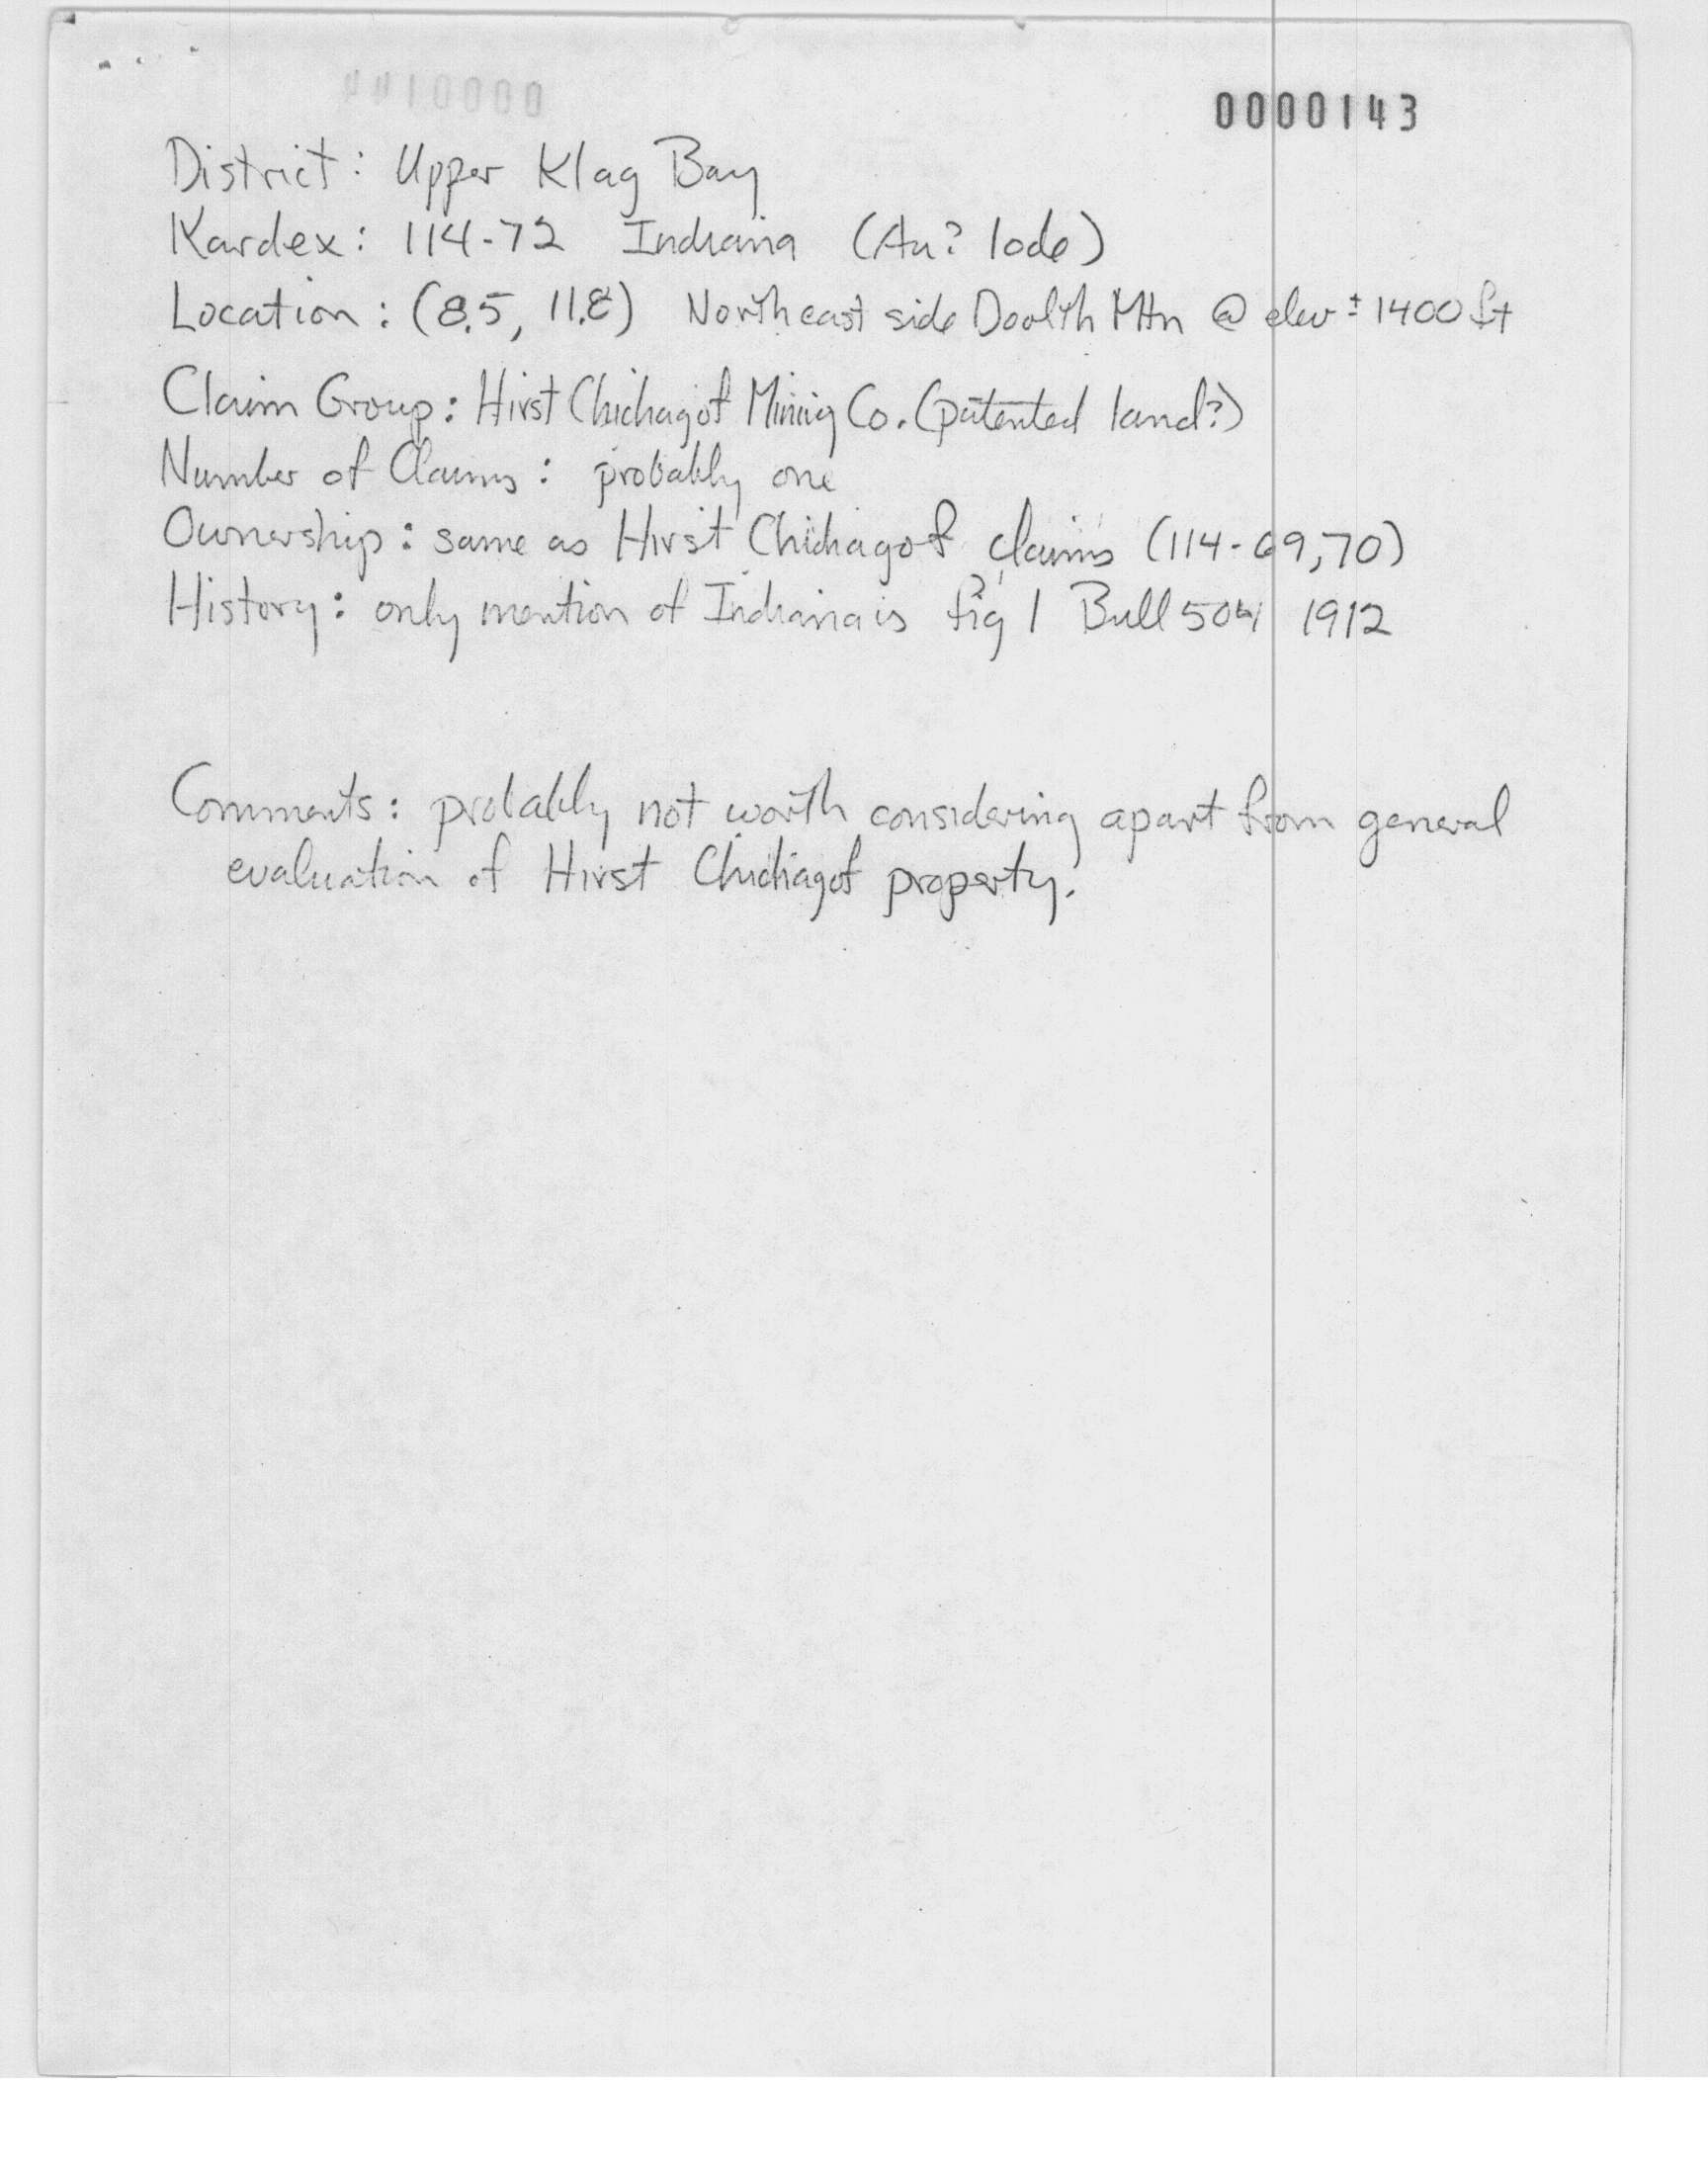 4410000
0000143
District: Upper Klag Bay
Kardex: 114-72 Indiana (Au? lode)
Location: (8.5, 11.8) Northeast side Doolth Mtn @ elev ± 1400 ft
Claim Group: Hirst Chichagof Mining Co. (patented land?)
Number of Claims: probably one
Ownership: same as Hirst Chichagof claims (114-69,70)
History: only mention of Indiana is fig 1 Bull 504 1912
Comments: probably not worth considering apart from general
evaluation of Hirst Chichagof property.